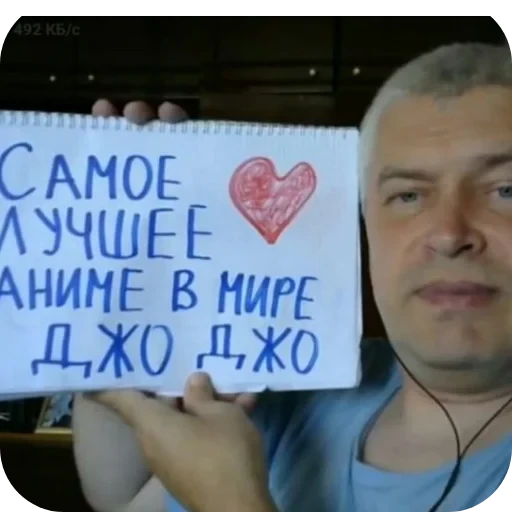 492 КБ/с
САМОЕ
ЛУЧШЕЕ
АНИМЕ В МИРЕ
ДЖО ДЖО